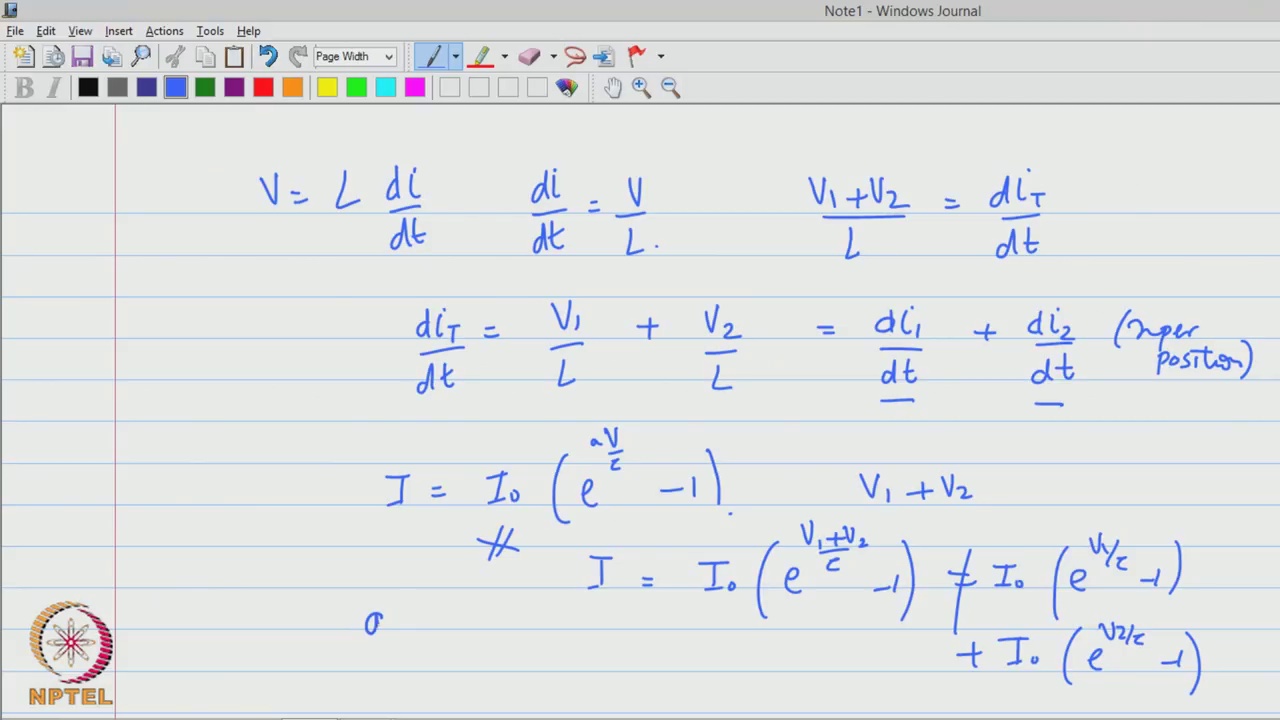 Note1 - Windows Journal
File Edit View Insert Actions Tools Help
Page Width
B I
V = L di/dt di/dt = V/L. V1+V2/L = diT/dt
diT/dt = V1/L + V2/L = di1/dt + di2/dt (super
position)
I = I0 (e^aV/c - 1). V1 + V2
I = I0 (e^V1+V2/c - 1) ≠ I0 (e^V1/c - 1)
+ I0 (e^V2/c - 1)
NPTEL